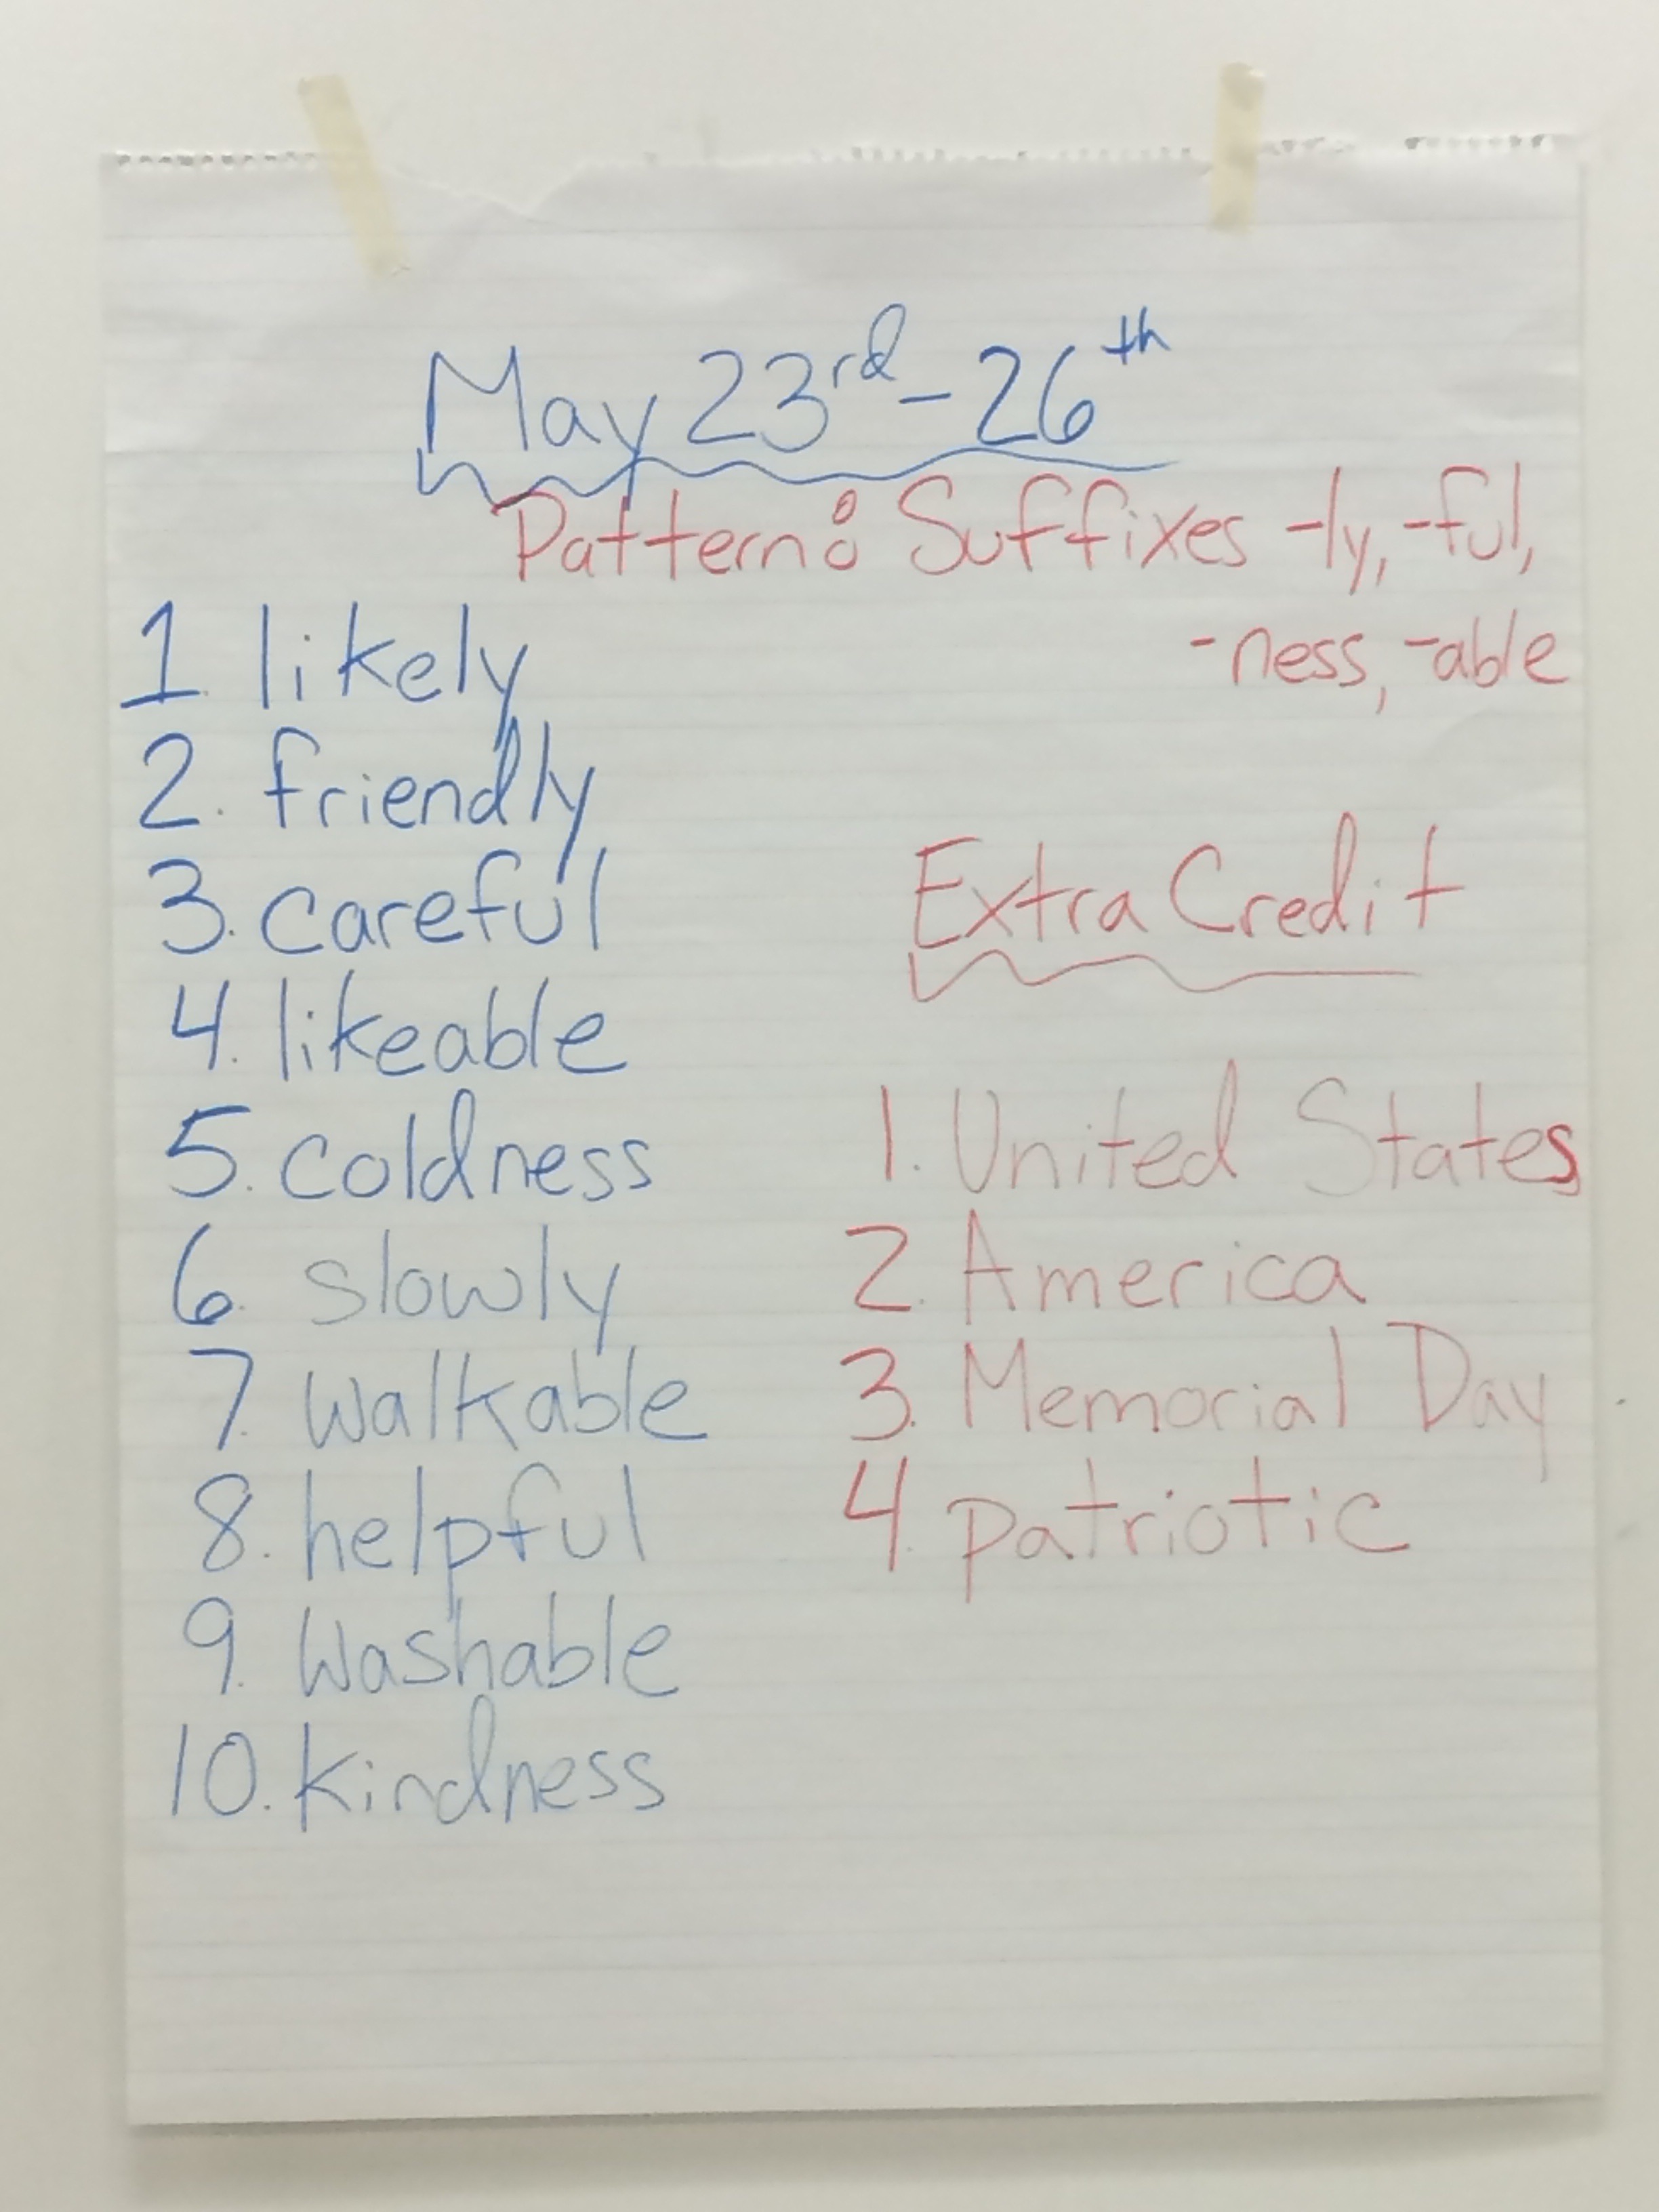 May 23rd - 26th
Pattern: Suffixes -ly, -ful,
-ness, -able
1. likely
2. friendly
3. careful
4. likeable
5. coldness
6. slowly
7. walkable
8. helpful
9. washable
10. kindness
Extra Credit
1. United States
2. America
3. Memorial Day
4. patriotic